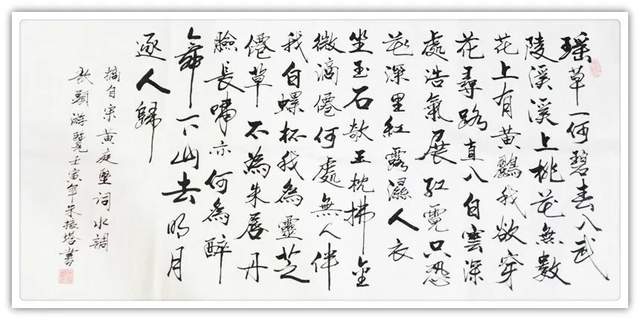 瑶草一何碧春入武
陵溪溪上桃花無數
花上有黃鸝我欲穿
花尋路直入白雲深
處浩氣展紅霓只恐
花深里紅露濕人衣
坐玉石欹玉枕拂金
徽謫僊何處無人伴
我白螺杯我為靈芝
僊草不為朱唇丹
臉長嘯亦何為醉
舞下山去明月
逐人歸
摘自宋黃庭堅詞水調
歌頭游覽壬寅年朱振塔書